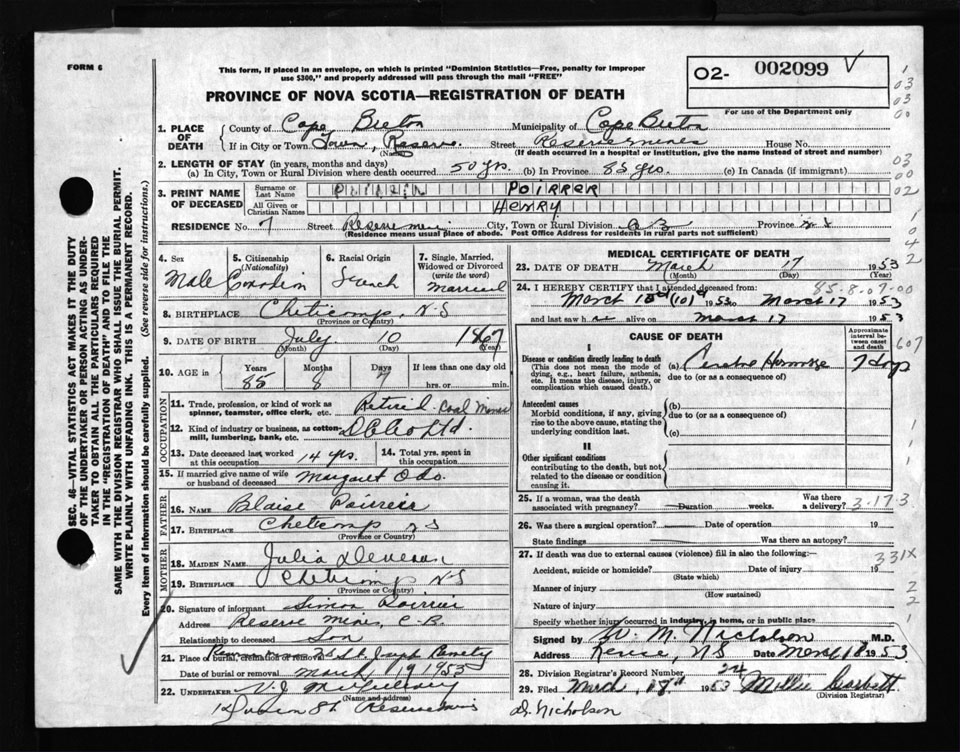 FORM 6
This form, if placed in an envelope, on which is printed "Dominion Statistics—Free, penalty for improper
use $300," and properly addressed will pass through the mail "FREE"
O2- 002099
For use of the Department only
PROVINCE OF NOVA SCOTIA—REGISTRATION OF DEATH
1. PLACE OF DEATH { County of Cape Breton Municipality of Cape Breton
If in City or Town Town, Reserve. Street Reserve mines House No.
(Name) (If death occurred in a hospital or institution, give the name instead of street and number)
2. LENGTH OF STAY (in years, months and days)
(a) In City, Town or Rural Division where death occurred 50 yrs. (b) In Province 85 yrs. (c) In Canada (if immigrant)
3. PRINT NAME OF DECEASED { Surname or Last Name POIRRER
All Given or Christian Names HENRY
RESIDENCE No. 7 Street Reserve mines City, Town or Rural Division C B Province N S
(Residence means usual place of abode. Post Office Address for residents in rural parts not sufficient)
4. Sex Male
5. Citizenship (Nationality) Canadian
6. Racial Origin French
7. Single, Married, Widowed or Divorced (write the word) Married
8. BIRTHPLACE Cheticamp, N.S
(Province or Country)
9. DATE OF BIRTH July 10 1867
(Month) (Day) (Year)
10. AGE in Years 85 Months 8 Days 7 If less than one day old hrs. or min.
OCCUPATION
11. Trade, profession, or kind of work as spinner, teamster, office clerk, etc. Retired Coal Miner
12. Kind of industry or business, as cotton-mill, lumbering, bank, etc. D C Co Ltd.
13. Date deceased last worked at this occupation 14 yrs. 14. Total yrs. spent in this occupation
15. If married give name of wife or husband of deceased Margaret Odo.
FATHER
16. NAME Blaise Poirrier
17. BIRTHPLACE Cheticamp N S
(Province or Country)
MOTHER
18. MAIDEN NAME Julia Deveau
19. BIRTHPLACE Cheticamp N-S
(Province or Country)
20. Signature of informant Simon Poirrier
Address Reserve Mines, C-B.
Relationship to deceased Son
21. Place of burial, cremation or removal St Joseph Cemetery
Date of burial or removal March 19 1953
22. UNDERTAKER V. J.
(Name and address)
MEDICAL CERTIFICATE OF DEATH
23. DATE OF DEATH March 17 1953
(Month) (Day) (Year)
85-8-07-00
24. I HEREBY CERTIFY that I attended deceased from:
March 10th (10) 1953 to March 17 1953
and last saw h alive on March 17 1953
CAUSE OF DEATH
Approximate interval between onset and death
607
I
Disease or condition directly leading to death
(This does not mean the mode of dying, e.g., heart failure, asthenia, etc. It means the disease, injury, or complication which caused death.)
(a) Cerebral Hemorrhage 7 days
due to (or as a consequence of)
Antecedent causes
Morbid conditions, if any, giving rise to the above cause, stating the underlying condition last.
(b)
due to (or as a consequence of)
(c)
II
Other significant conditions
contributing to the death, but not related to the disease or condition causing it.
25. If a woman, was the death associated with pregnancy? Duration weeks. Was there a delivery?
3-17-3
26. Was there a surgical operation? Date of operation 19
State findings Was there an autopsy?
27. If death was due to external causes (violence) fill in also the following:—
331X
Accident, suicide or homicide? Date of injury 19
(State which)
Manner of injury
(How sustained)
Nature of injury
Specify whether injury occurred in industry, in home, or in public place
Signed by W. M. Nicholson M.D.
Address Reserve, N S Date March 18 1953
28. Division Registrar's Record Number 24
29. Filed March 18th 1953 Millie Corbett
(Division Registrar)
Dr. Nicholson
SEC. 46—VITAL STATISTICS ACT MAKES IT THE DUTY
OF THE UNDERTAKER OR PERSON ACTING AS UNDER-
TAKER TO OBTAIN ALL THE PARTICULARS REQUIRED
IN THE "REGISTRATION OF DEATH" AND TO FILE THE
SAME WITH THE DIVISION REGISTRAR WHO SHALL ISSUE THE BURIAL PERMIT.
WRITE PLAINLY WITH UNFADING INK. THIS IS A PERMANENT RECORD.
Every item of information should be carefully supplied. (See reverse side for instructions.)